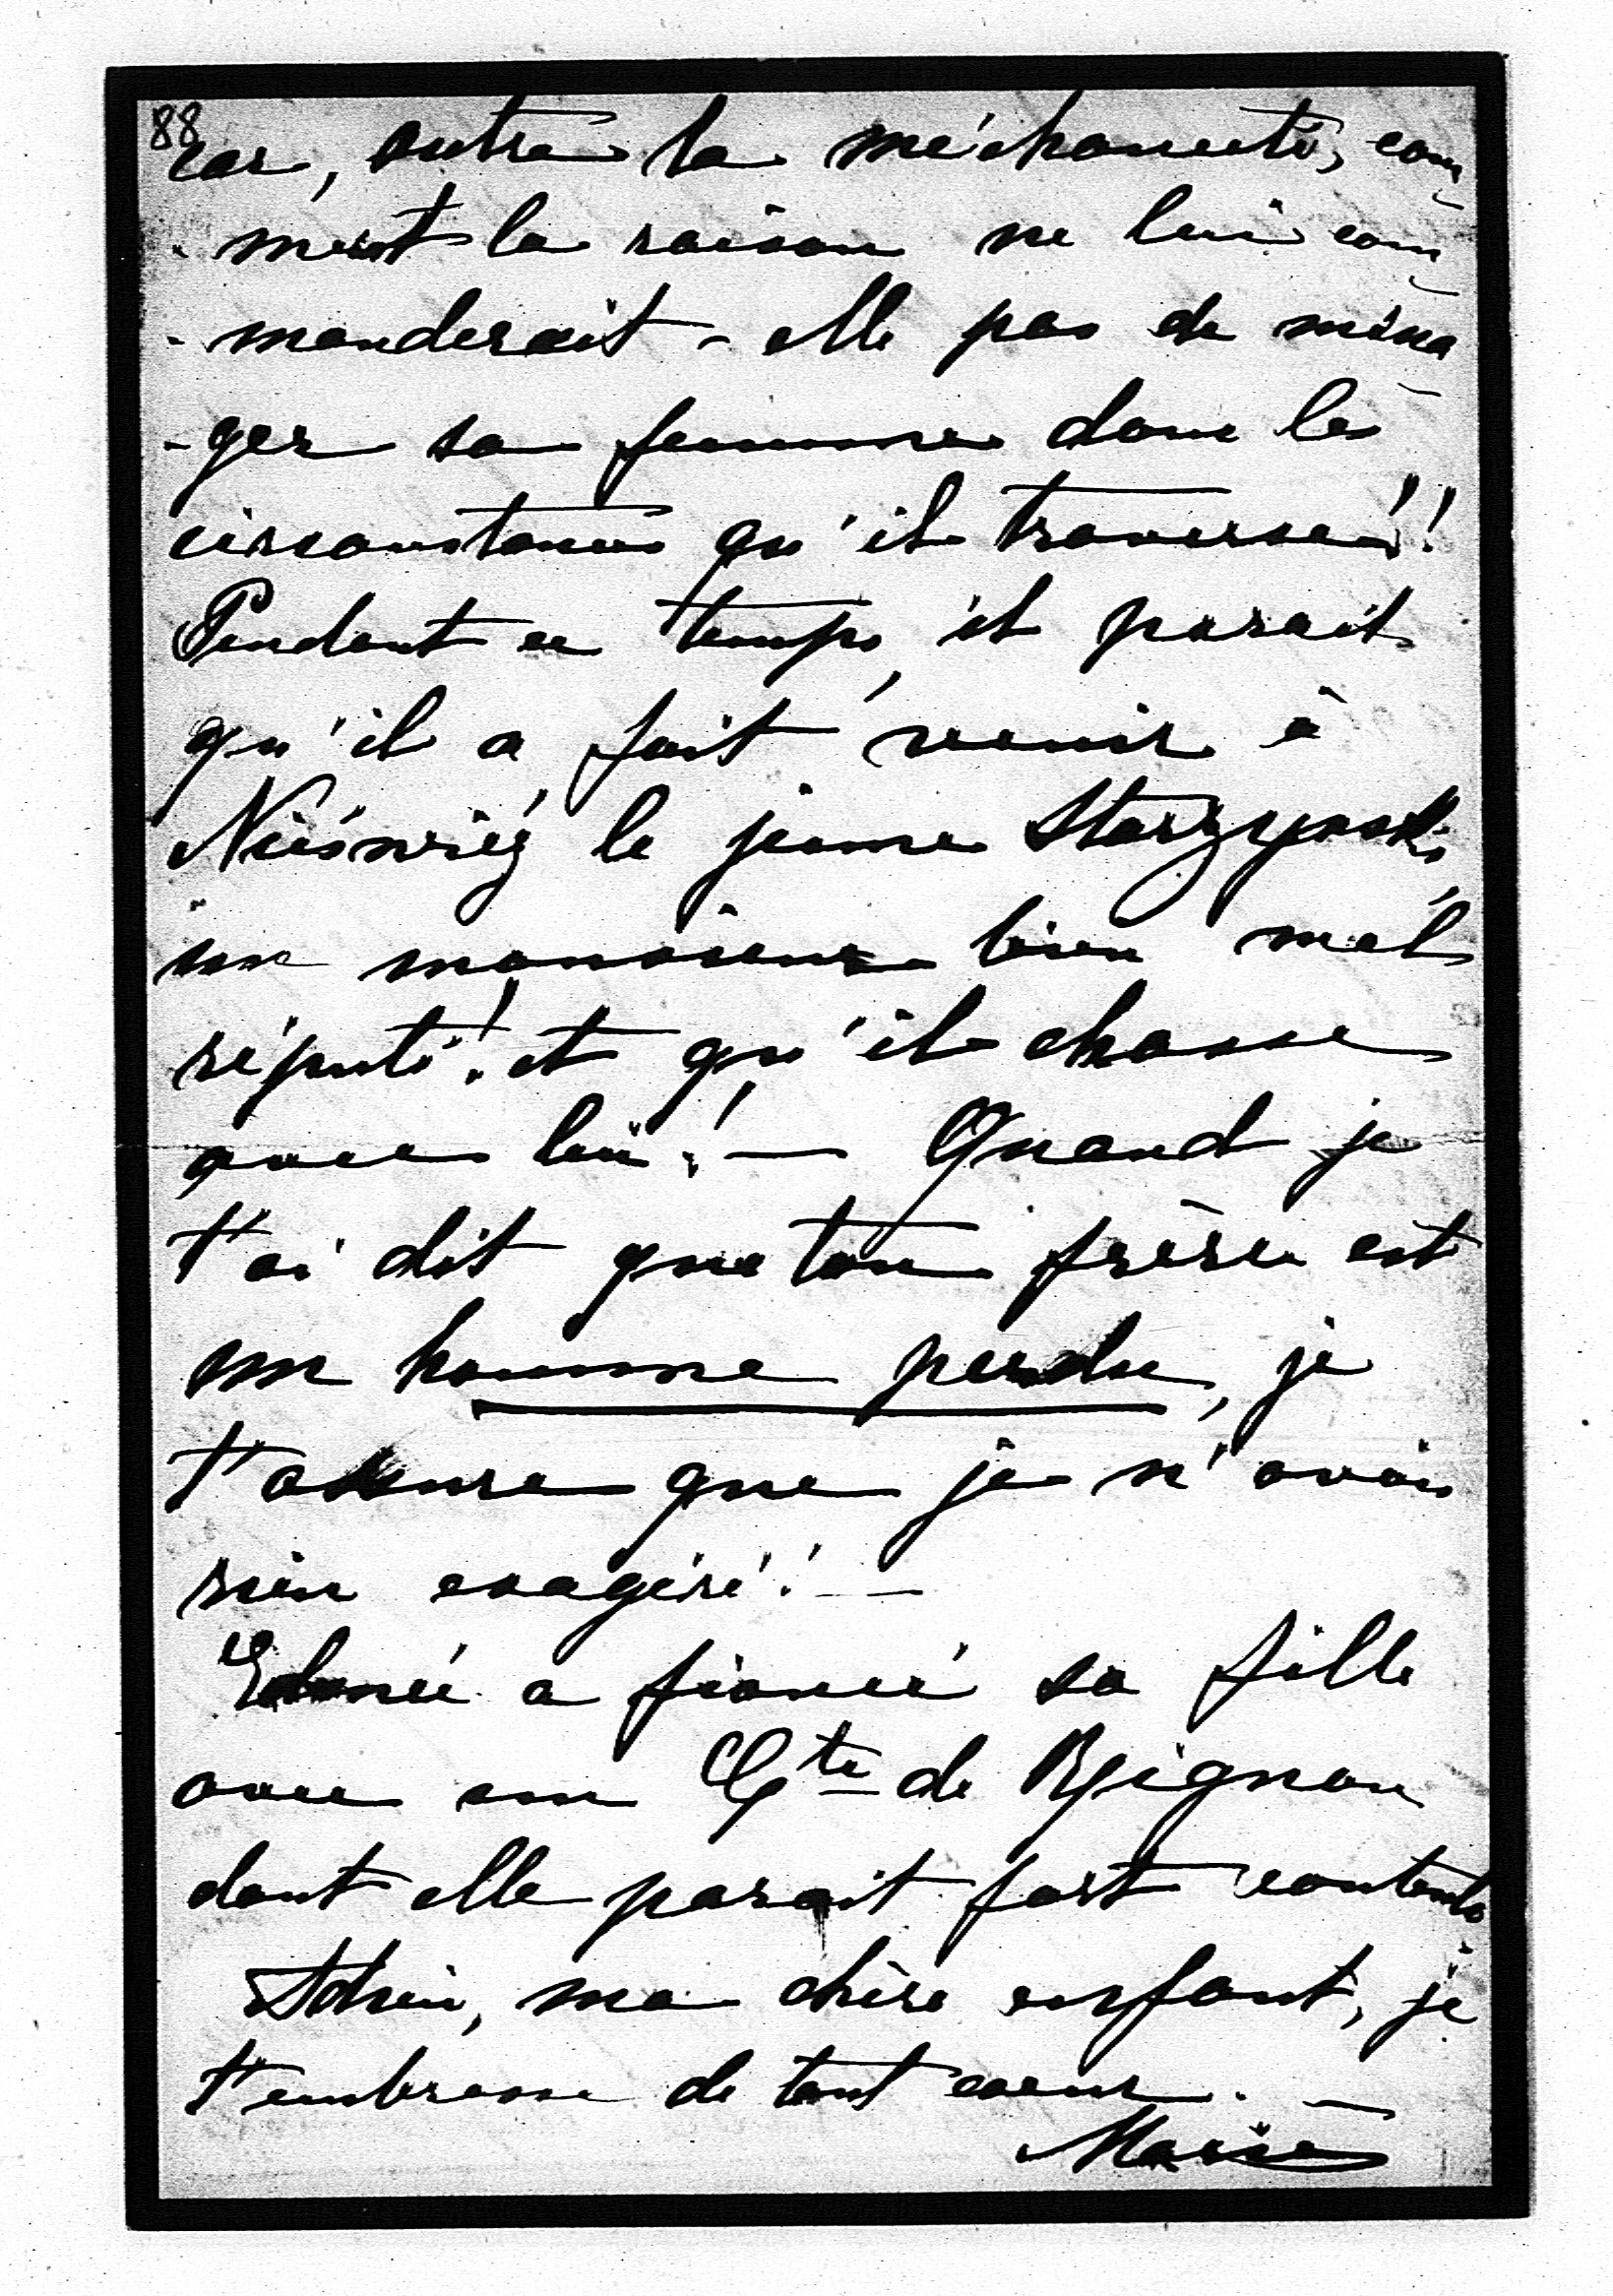 88
car, outre la méchanceté, com-
-ment la raison ne lui com-
-manderait-elle pas de ména-
-ger sa femme dans les
circonstances qu'il traverse!!
Pendant ce temps, il parait
qu'il a fait venir à
Nieśwież le jeune Starzynski,
un monsieur bien mal
réputé! et qu'il chasse
avec lui! — Quand je
t'ai dit que ton frère est
un homme perdu, je
t'assure que je n'avais
rien exagéré! —
a fiancé sa fille
avec un Cte de
dont elle parait fort contente
Adieu, ma chère enfant, je
t'embrasse de tout coeur. —
Marie